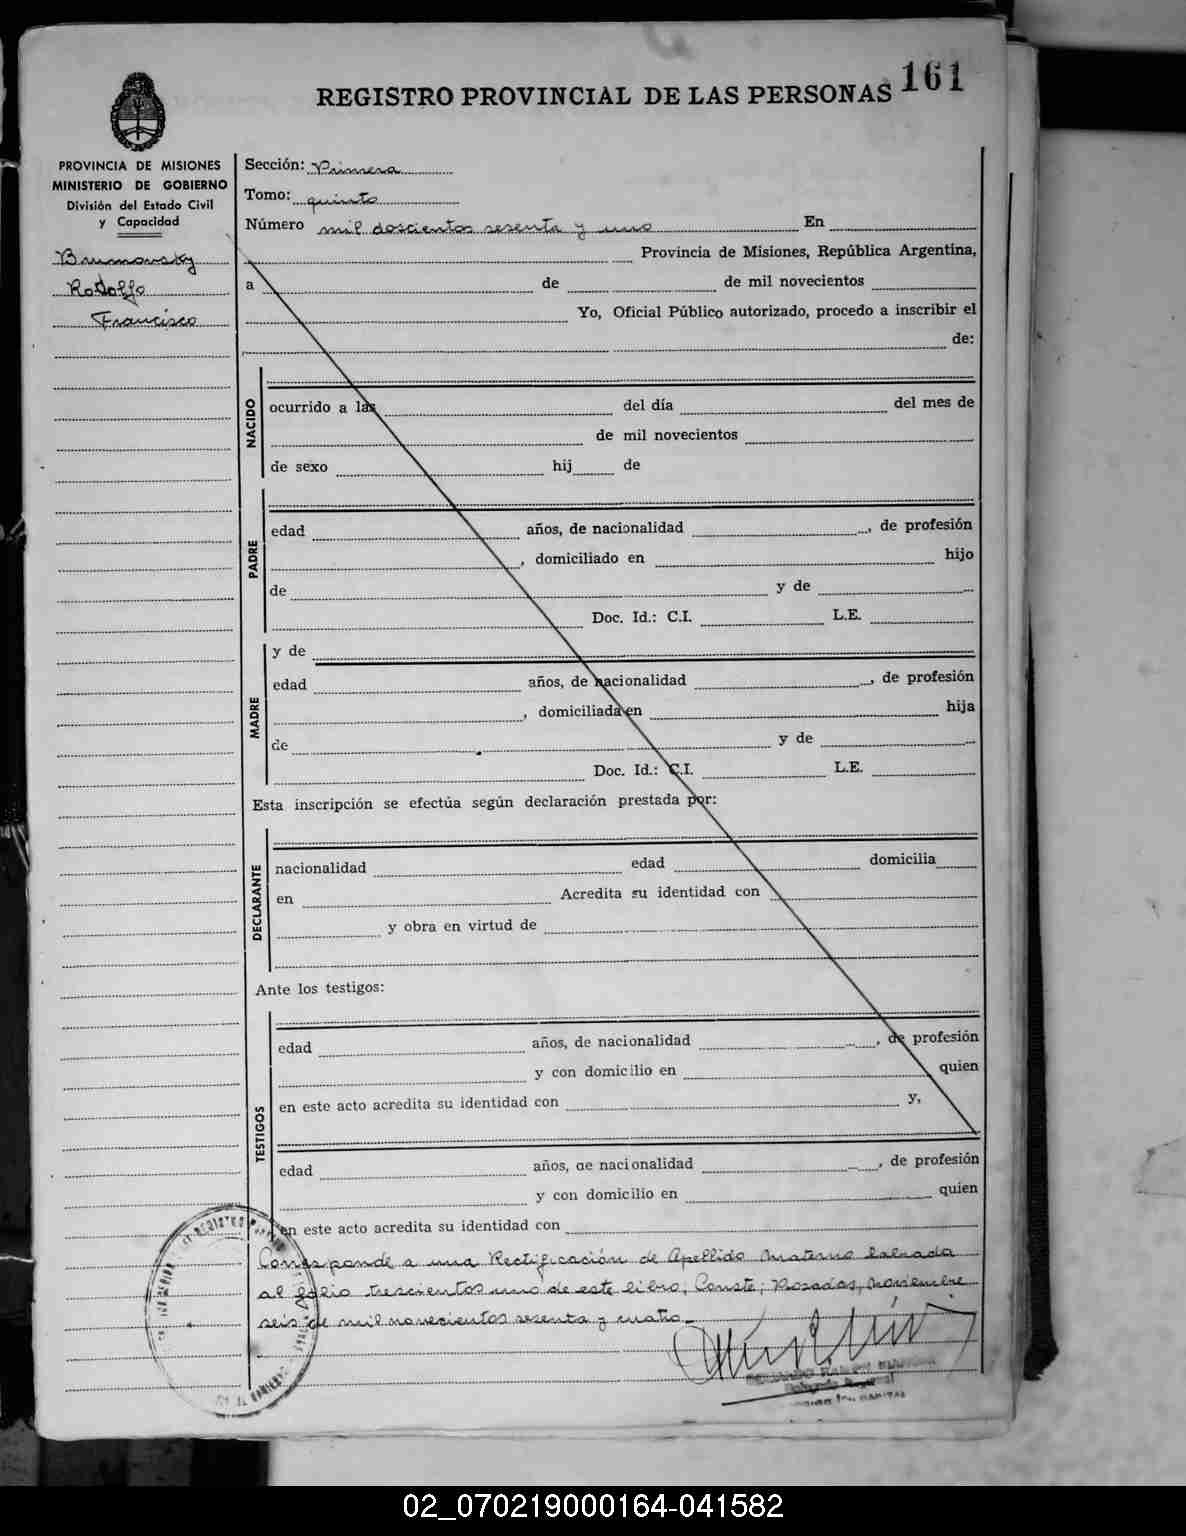 161
REGISTRO PROVINCIAL DE LAS PERSONAS
PROVINCIA DE MISIONES
MINISTERIO DE GOBIERNO
División del Estado Civil
y Capacidad
Brumovsky
Rodolfo
Francisco
Sección: Primera
Tomo: quinto
Número mil doscientos sesenta y uno En
Provincia de Misiones, República Argentina,
a de de mil novecientos
Yo, Oficial Público autorizado, procedo a inscribir el
de:
NACIDO
ocurrido a las del día del mes de
de mil novecientos
de sexo hij de
PADRE
edad años, de nacionalidad , de profesión
, domiciliado en hijo
de y de
Doc. Id.: C.I. L.E.
MADRE
y de
edad años, de nacionalidad , de profesión
, domiciliada en hija
de y de
Doc. Id.: C.I. L.E.
Esta inscripción se efectúa según declaración prestada por:
DECLARANTE
nacionalidad edad domicilia
en Acredita su identidad con
y obra en virtud de
Ante los testigos:
TESTIGOS
edad años, de nacionalidad , de profesión
y con domicilio en quien
en este acto acredita su identidad con y,
edad años, de nacionalidad , de profesión
y con domicilio en quien
en este acto acredita su identidad con
Corresponde a una Rectificación de Apellido Materno labrada
al folio trescientos uno de este libro, Conste; Posadas, noviembre
seis de mil novecientos sesenta y cuatro
02_070219000164-041582